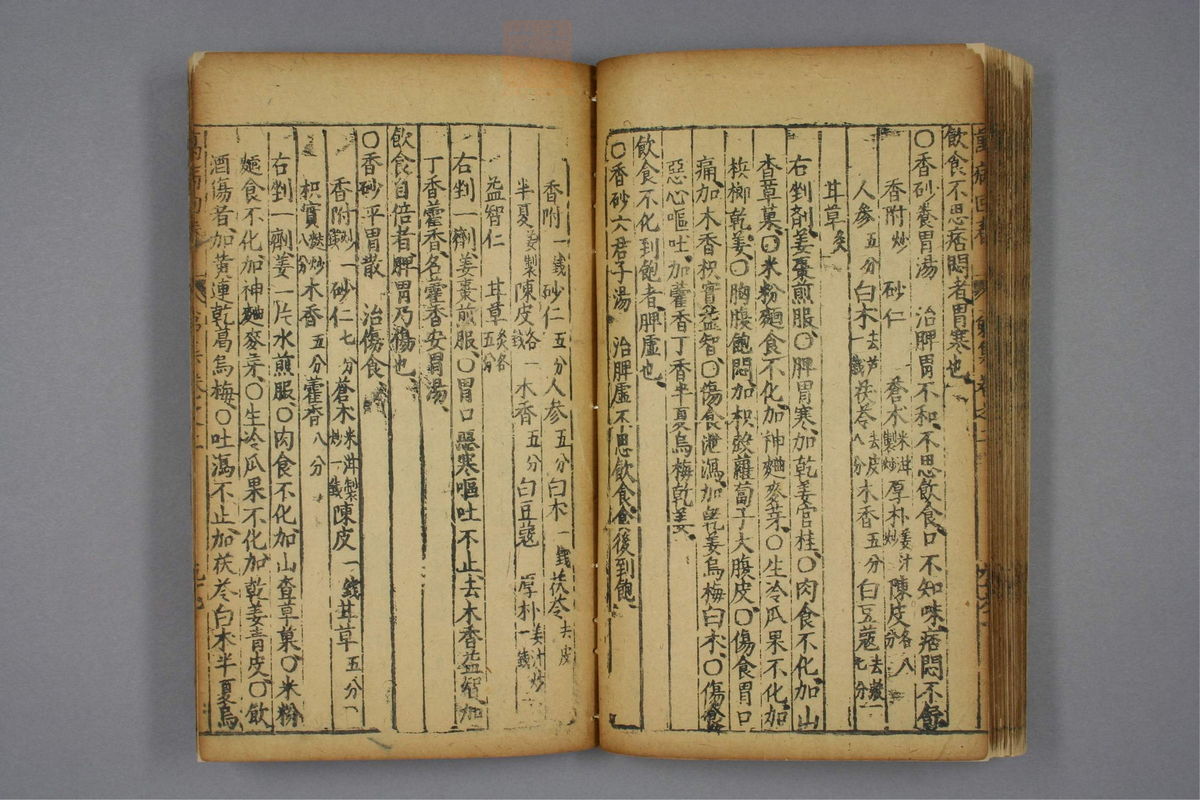 飲食不思痞悶者胃寒也
〇香砂養胃湯 治脾胃不和不思飲食口不知味痞悶不舒
香附炒 砂仁 蒼朮米泔製炒厚朴姜汁炒陳皮各八分
人參五分白朮去芦一錢茯苓去皮八分木香五分白豆蔻去殼七分
甘草炙
右剉劑姜棗煎服〇脾胃寒加乾姜官桂〇肉食不化加山
查草菓〇米粉麵食不化加神麯麥芽〇生冷瓜果不化加
檳榔乾姜〇胸腹飽悶加枳殼蘿蔔子大腹皮〇傷食胃口
痛加木香枳實益智〇傷食泄瀉加乾姜烏梅白朮〇傷食
惡心嘔吐加藿香丁香半夏烏梅乾姜
飲食不化到飽者脾虛也
〇香砂六君子湯 治脾虛不思飲食食後到飽
香附一錢砂仁五分人參五分白朮一錢茯苓去皮
半夏姜製陳皮各一錢木香五分白豆蔻 厚朴姜汁炒一錢
益智仁 甘草炙各五分
右剉一劑姜棗煎服〇胃口惡寒嘔吐不止去木香益智加
丁香藿香名藿香安胃湯
飲食自倍者脾胃乃傷也
〇香砂平胃散 治傷食
香附炒一錢砂仁七分蒼朮米泔製炒一錢陳皮一錢甘草五分
枳實麩炒八分木香五分藿香八分
右剉一劑姜一片水煎服〇肉食不化加山查草菓〇米粉
麵食不化加神麯麥芽〇生冷瓜果不化加乾姜青皮〇飲
酒傷者加黃連乾葛烏梅〇吐瀉不止加茯苓白朮半夏烏